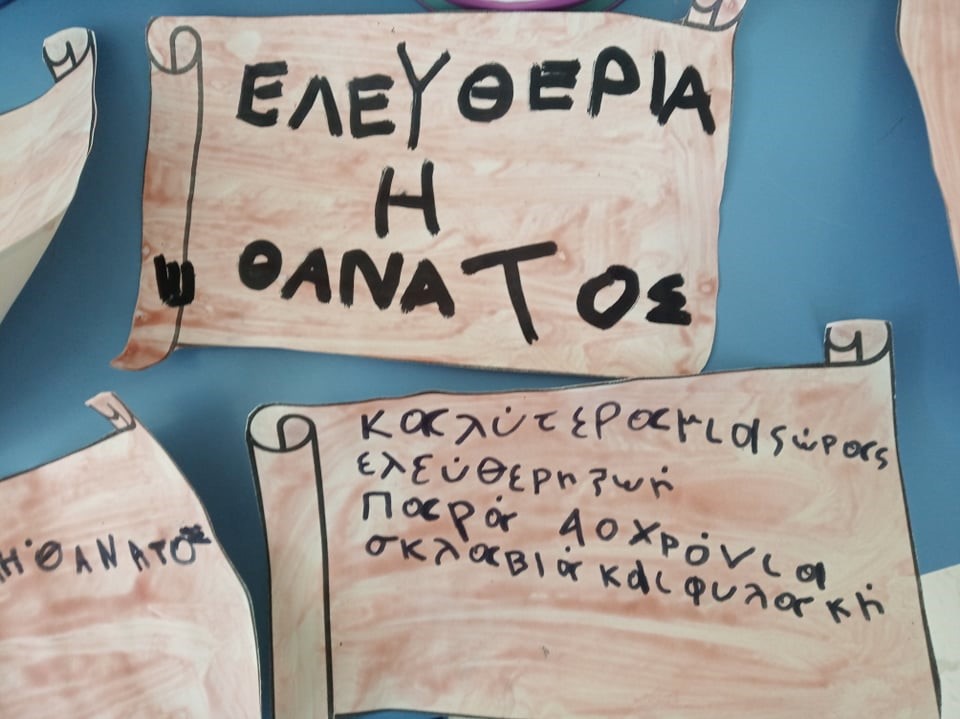 ΕΛΕΥΘΕΡΙΑ
Η
ΘΑΝΑΤΟΣ
καλύτερα μιας ώρας
ελεύθερη ζωή
Παρά 40 χρόνια
σκλαβιά και φυλακή
Η ΘΑΝΑΤΟΣ